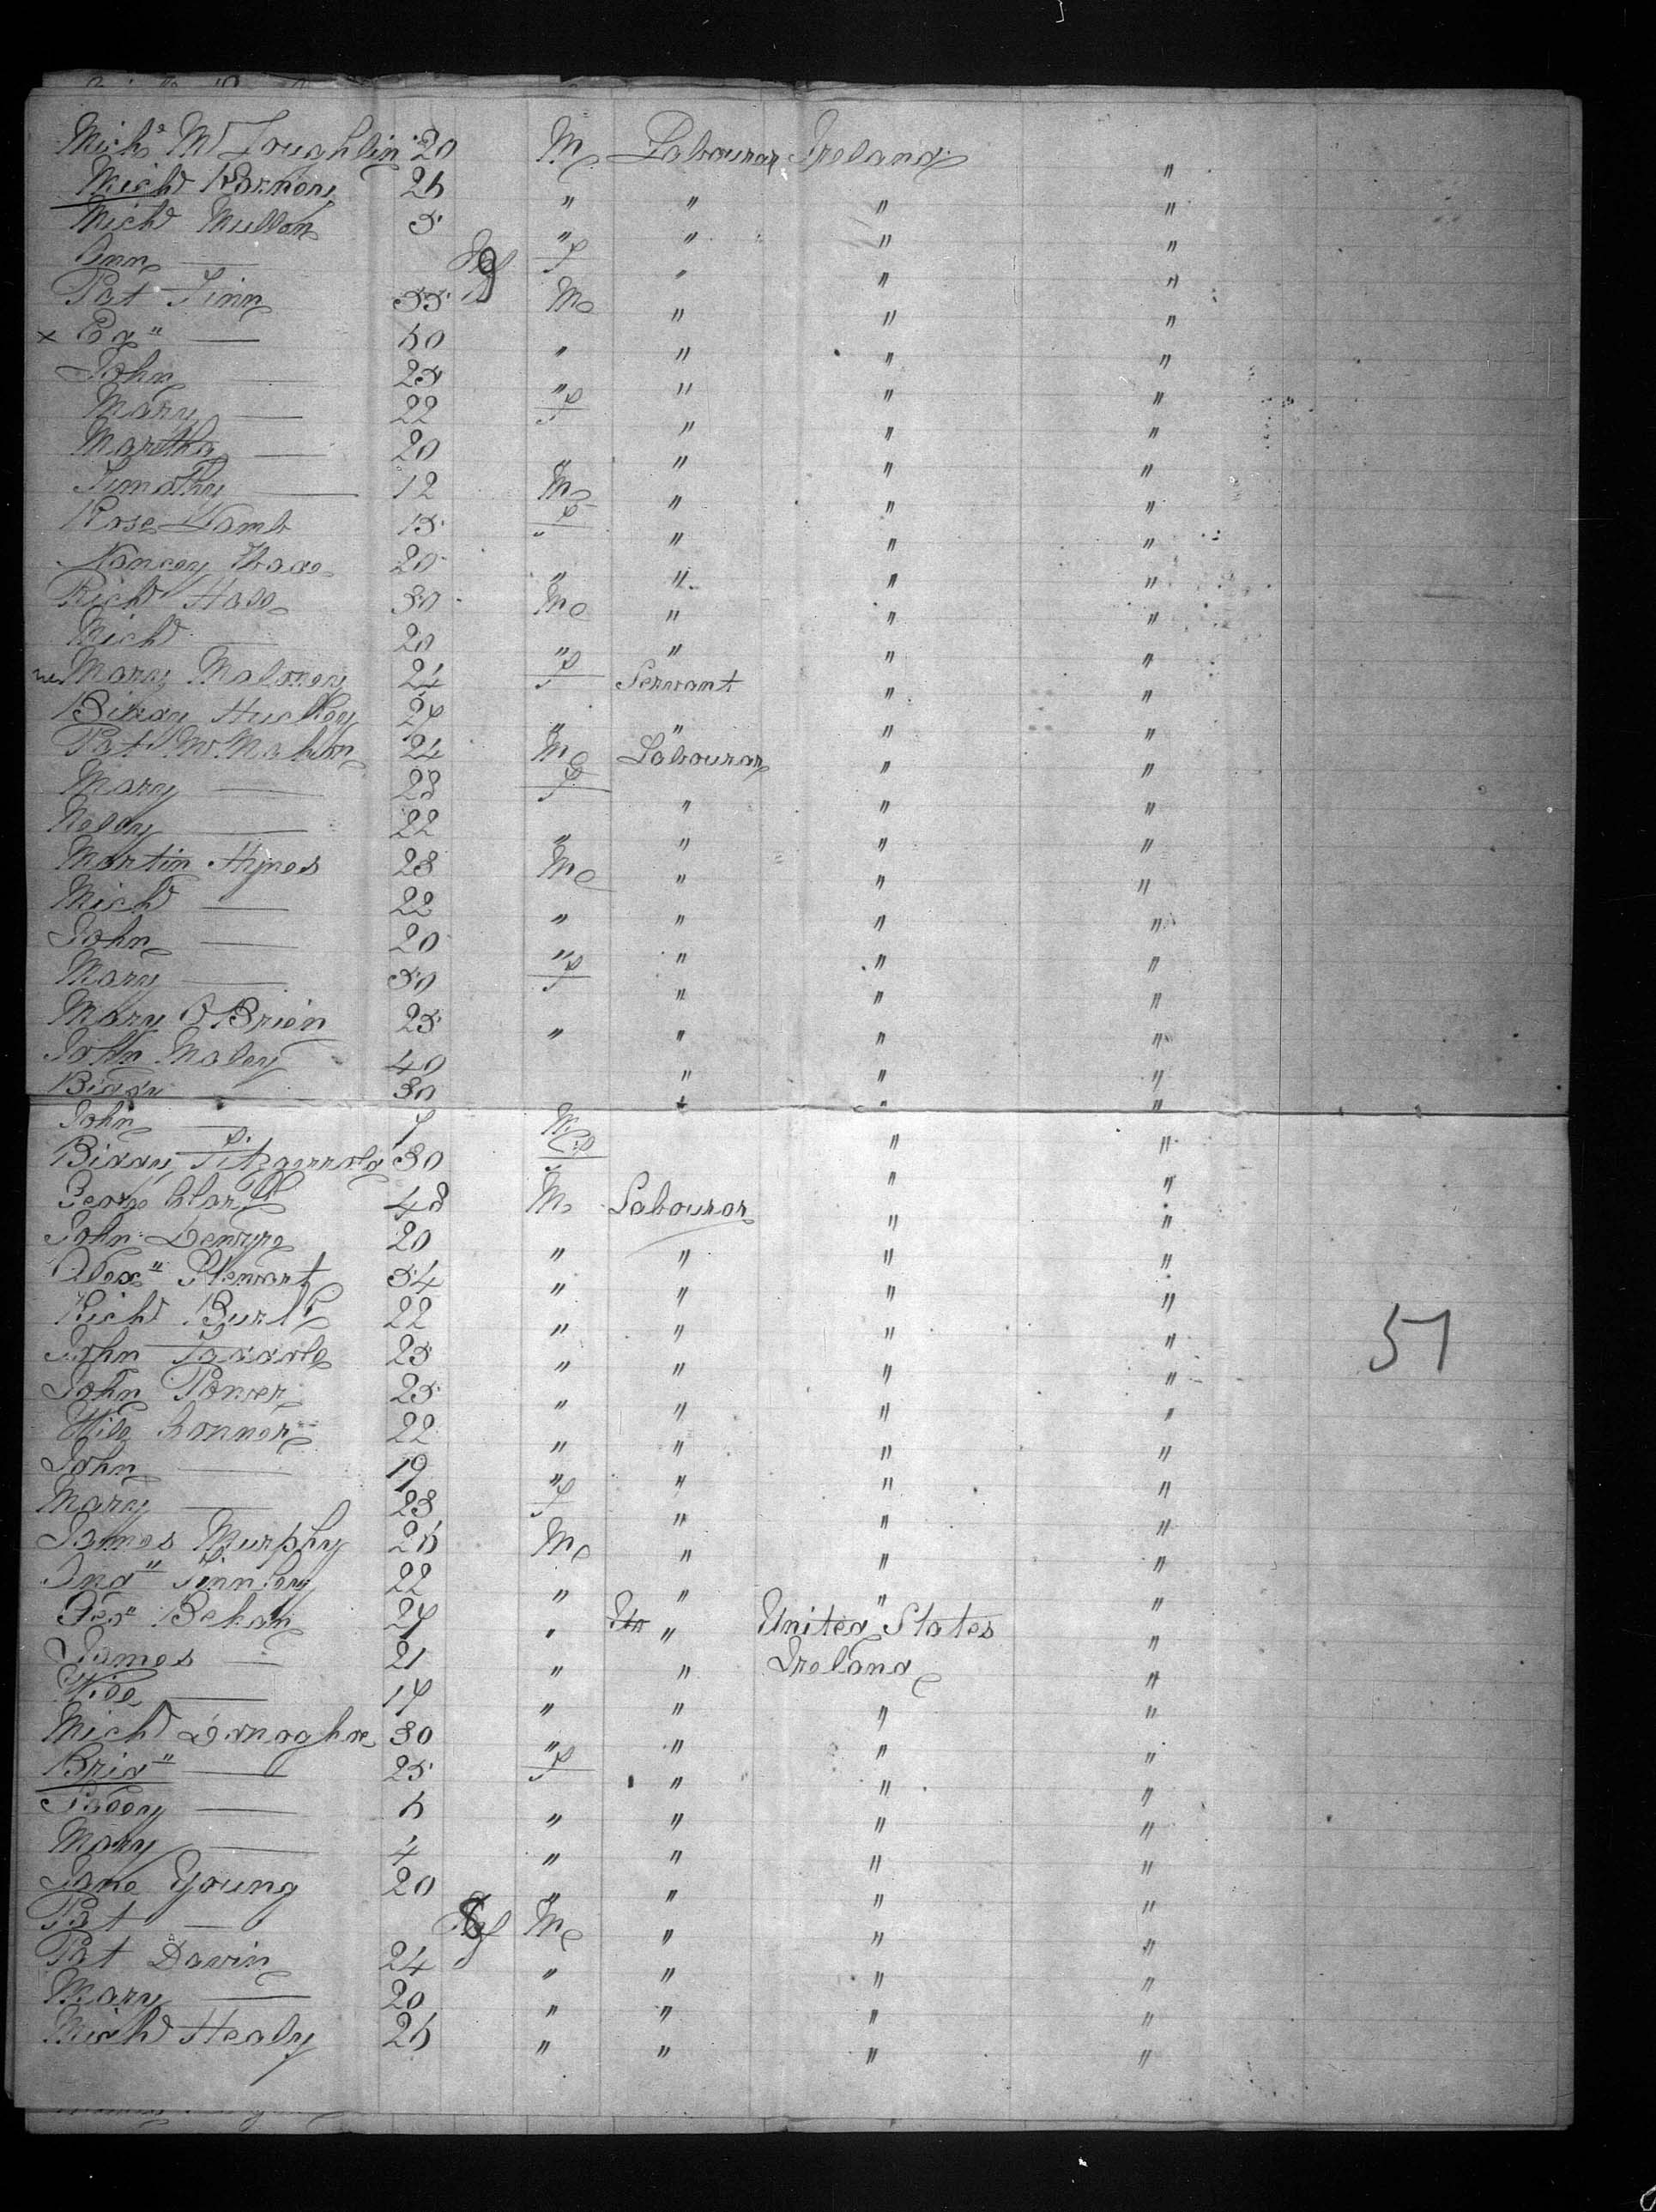 Mich^l M^c Loughlin 20 M Labourer Ireland "
Mich^l 26 " " " "
Mich^l Mullon 5 " " " "
Ann — Inf F " " "
Pat Finn 55 M " " "
x — 60 " " " "
John — 25 " " " "
Mary — 22 F " " "
Martha — 20 " " " "
Timothy — 12 M " " "
Rose Lamb 15 F " " "
Nancey 20 " " " "
Rich^d 30 M " " "
Mich^l — 20 " " " "
Mary Maloney 24 F Servant " "
Biddy 27 " " " "
Pat M^cMahon 24 M Labourer " "
Mary — 23 F " " "
— 22 " " " "
Martin Hynes 23 M " " "
Mich^l — 22 " " " "
John — 20 " " " "
Mary — 50 F " " "
Mary O Brien 25 " " " "
John Maley 40 " " "
Biddy 30 " " "
John — 7 M " "
Biddy Fitzgerrald 30 F " "
George Clark 48 M Labourer " "
John 20 " " " "
Alex" Stewart 54 " " " "
Rich^d Burk 22 " " " "
John 25 " " " "
John Power 25 " " " "
Connor 22 " " " "
John — 19 " " " "
Mary — 23 F " " "
James Murphy 26 M " " "
And" Finnley 22 " " " "
Behan 27 " " United States "
James — 21 " " Ireland "
— 17 " " " "
Mich^l Donaghoe 30 " " " "
Brid" — 25 F " " "
— 6 " " " "
Mary — 4 " " " "
Jane Young 20 " " " "
Pat — Inf M " " "
Pat Davin 24 " " " "
Mary — 20 " " " "
Mich^l Healy 26 " " " "
51